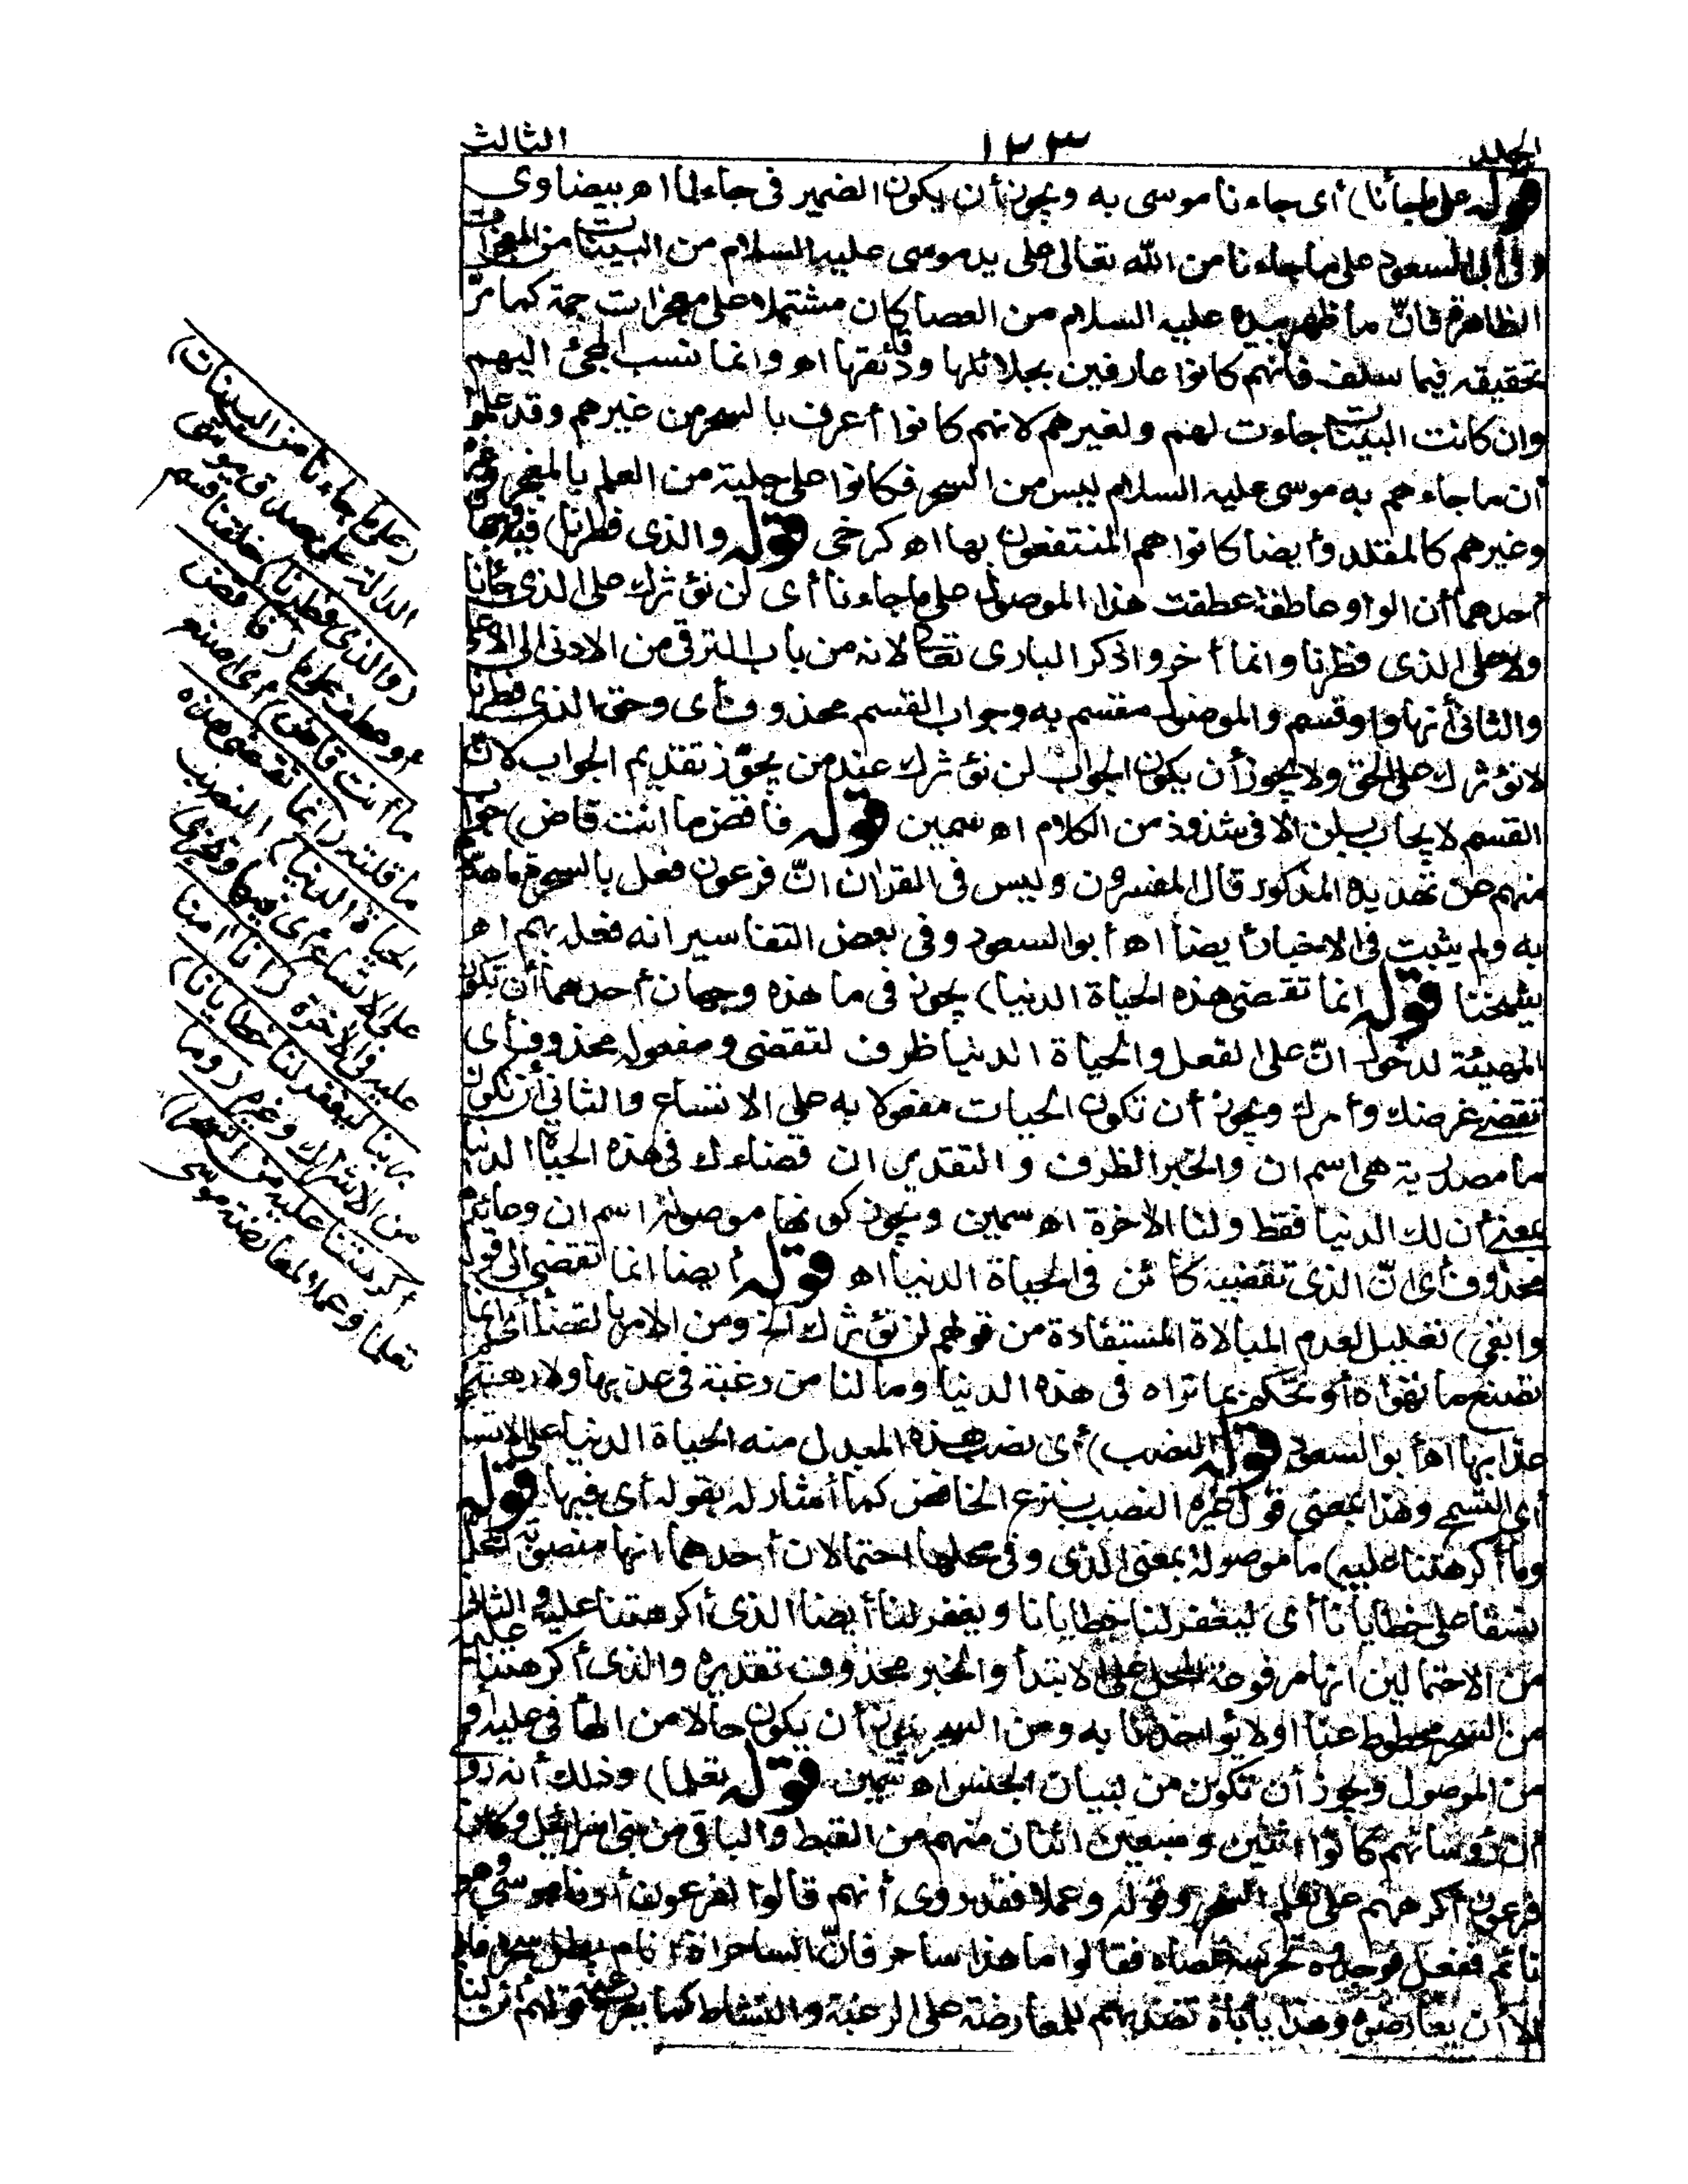 الجلد
١٢٣
الثالث
قوله على ما جاءنا) أى جاءنا موسى به ويجوز أن يكون الضمير فى جاء لما اه بيضاوى
وفى أبى السعود على ما جاءنا من الله تعالى على يد موسى عليه السلام من البينات من المعجزات
الظاهرة فانّ ما ظهر بيده عليه السلام من العصا كان مشتملا على معجزات جمة كما مرّ
تحقيقه فيما سلف فانهم كانوا عارفين بجلائلها ودقائقها اه وانما نسب المجئ اليهم
وان كانت البينات جاءت لهم ولغيرهم لانهم كانوا أعرف بالسحر من غيرهم وقد علموا
أن ما جاءهم به موسى عليه السلام ليس من السحر فكانوا على جلية من العلم بالمعجز
وغيرهم كالمقلد وأيضا كانوا هم المنتفعون بها اه كرخى قوله والذى فطرنا) فيه وجهان
أحدهما أن الواو عاطفة عطفت هذا الموصول على ما جاءنا أى لن نؤثرك على الذى جاءنا
ولا على الذى فطرنا وانما أخروا ذكر البارى تعالى لانه من باب الترقى من الادنى الى الاعلى
والثانى أنها واو قسم والموصول مقسم به وجواب القسم محذوف أى وحق الذى فطرنا
لا نؤثرك على الحق ولا يجوز أن يكون الجواب لن نؤثرك عند من يجوّز تقديم الجواب لانّ
القسم لا يجاب بلن الا فى شذوذ من الكلام اه سمين قوله فاقض ما انت قاض) جواب
منهم عن تهديده المذكور قال المفسرون وليس فى القران انّ فرعون فعل بالسحرة ما هددهم
به ولم يثبت فى الاخبار أيضا اه أبو السعود وفى بعض التفاسير انه فعله بهم اه
شيخنا قوله انما تقضى هذه الحياة الدنيا) يجوز فى ما هذه وجهان أحدهما أن تكون
المهيئة لدخول انّ على الفعل والحياة الدنيا ظرف لتقضى ومفعوله محذوف أى
تقضى غرضك وأمرك ويجوز أن تكون الحيات مفعولا به على الاتساع والثانى أن تكون
ما مصدرية هى اسم ان والخبر الظرف والتقدير ان قضاءك فى هذه الحياة الدنيا
يعنى أن لك الدنيا فقط ولنا الأخرة اه سمين ويجوز كونها موصولة اسم ان وعائدها
محذوف أى انّ الذى تقضيه كائن فى الحياة الدنيا اه قوله أيضا انما تقضى الى قوله
وابقى) تعليل لعدم المبالاة المستفادة من قولهم لن نؤثرك الخ ومن الامر بالقضاء أى انما
تصنع ما تهواه أو تحكم بما تراه فى هذه الدنيا وما لنا من رغبة فى عذبها ولا رهبة من
عذابها اه أبو السعود قوله النصب) أى نصب هذه المبدل منه الحياة الدنيا على الاتساع
أى التسمح وهذا بمعنى قول غيره النصب بنزع الخافض كما أشار له بقوله أى فيها قوله
وما أكرهتنا عليه) ما موصولة بمعنى الذى وفى محلها احتمالان أحدهما انها منصوبة المحل
نسقا على خطايانا أى ليغفر لنا خطايانا ويغفر لنا أيضا الذى أكرهتنا عليه والثانى
من الاحتمالين انها مرفوعة المحل على الابتدأ والخبر محذوف تقديره والذى أكرهتنا عليه
من السحر محطوط عنا أو لا يؤاخذنا به ومن السحر يجوز أن يكون حالا من الهاء فى عليه أو
من الموصول ويجوز أن تكون من لبيان الجنس اه سمين قوله تعلما) وذلك أنه روى
أن رؤساءهم كانوا اثنين وسبعين اثنان منهم من القبط والباقى من بنى اسرائيل وكان
فرعون أكرههم على تعلم السحر وقوله وعملا فقد روى أنهم قالوا لفرعون أرنا موسى وهو
نائم ففعل فوجدوه تحرسه عصاه فقالوا ما هذا ساحر فانّ الساحر اذا نام بطل سحره فأبى
الا أن يعارضوه وهذا يأباه تصديهم للمعارضة على الرغبة والنشاط كما يعرب عنه قولهم أئن لنا
(على ما جاءنا من البينات)
الدالة على صدق موسى
(والذى فطرنا) خلقنا قسم
أو عطف على ما (فاقض
ما أنت قاض) أى اصنع
ما قلته (انما تقضى هذه
الحياة الدنيا) النصب
على الاتساع أى فيها وتجزى
عليه فى الأخرة (انا امنا
بربنا ليغفر لنا خطايانا)
من الاشراك وغيره (وما
أكرهتنا عليه من السحر)
تعلما وعملا لمعارضة موسى